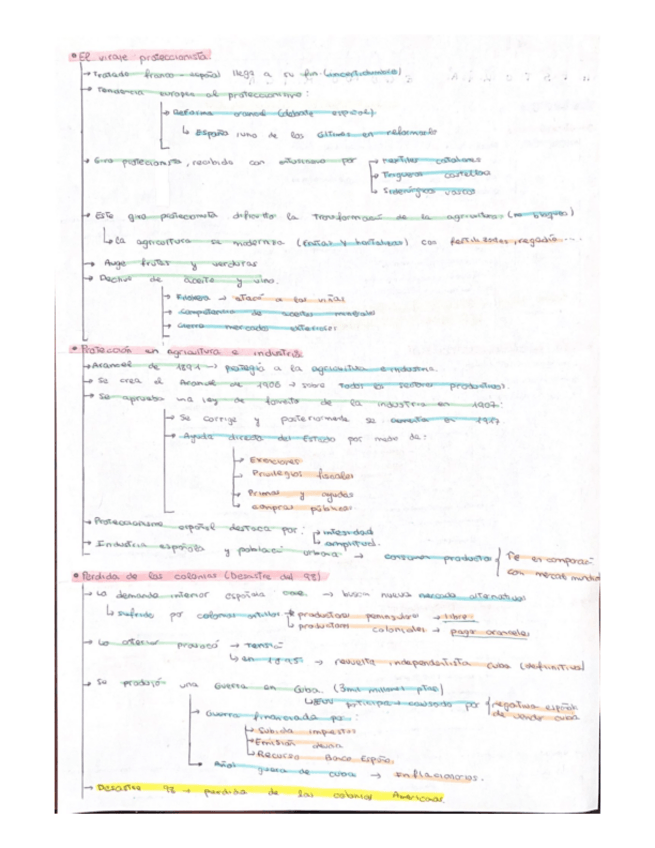 • El viraje proteccionista.
→ Tratado franco-español llega a su fin (incertidumbre)
→ Tendencia europea al proteccionismo:
→ Reforma arancel (debate español).
↳ España uno de los últimos en reformarlo
→ Giro proteccionista, recibido con entusiasmo por → textiles catalanes
→ Trigueros castellanos
→ Siderúrgicos vascos
→ Este giro proteccionista dificultó la transformació de la agricultura (no bloqueo)
↳ la agricultura se moderniza (frutas y hortalizas) con fertilizantes, regadío....
→ Auge frutas y verduras
→ Declive de aceite y vino.
→ Filoxera → atacó a las viñas
→ Competencia de aceites minerales
→ Cierre mercados exteriores
• Protección en agricultura e industria
→ Arancel de 1891 → protegía a la agricultura e industria.
→ Se crea el Arancel de 1906 → sobre todos los sectores productivos).
→ Se aprueba una ley de fomento de la industria en 1907:
→ Se corrige y posteriormente se aumenta en 1917
→ Ayuda directa del Estado por medio de:
→ Exenciones
→ Privilegios fiscales
→ Primas y ayudas
→ compras públicas
→ Proteccionismo español destaca por: → intensidad
→ amplitud.
→ Industria española y població urbana → consumen productos
en comparació
con mercat mundial
• Pérdida de las colonias (Desastre del 98)
→ La demanda interior española cae → busca nuevos mercados alternativos
↳ Sufrido por colonias antillas → productores peninsulares → libre.
↳ productores coloniales → pagar aranceles
→ Lo anterior provocó → Tensió
↳ en 1895: → revuelta independentista Cuba (definitiva)
→ Se produjo una Guerra en Cuba. (3mil millones ptas)
↳ EEUU participa → causado por negativa españa
de vender cuba
→ Guerra financiada por:
→ Subida impuestos
→ Emisión deuda
→ Recurso Banco España.
→ Años guerra de cuba → inflacionarios.
→ Desastre 98 → perdida de las colonias Americanas.